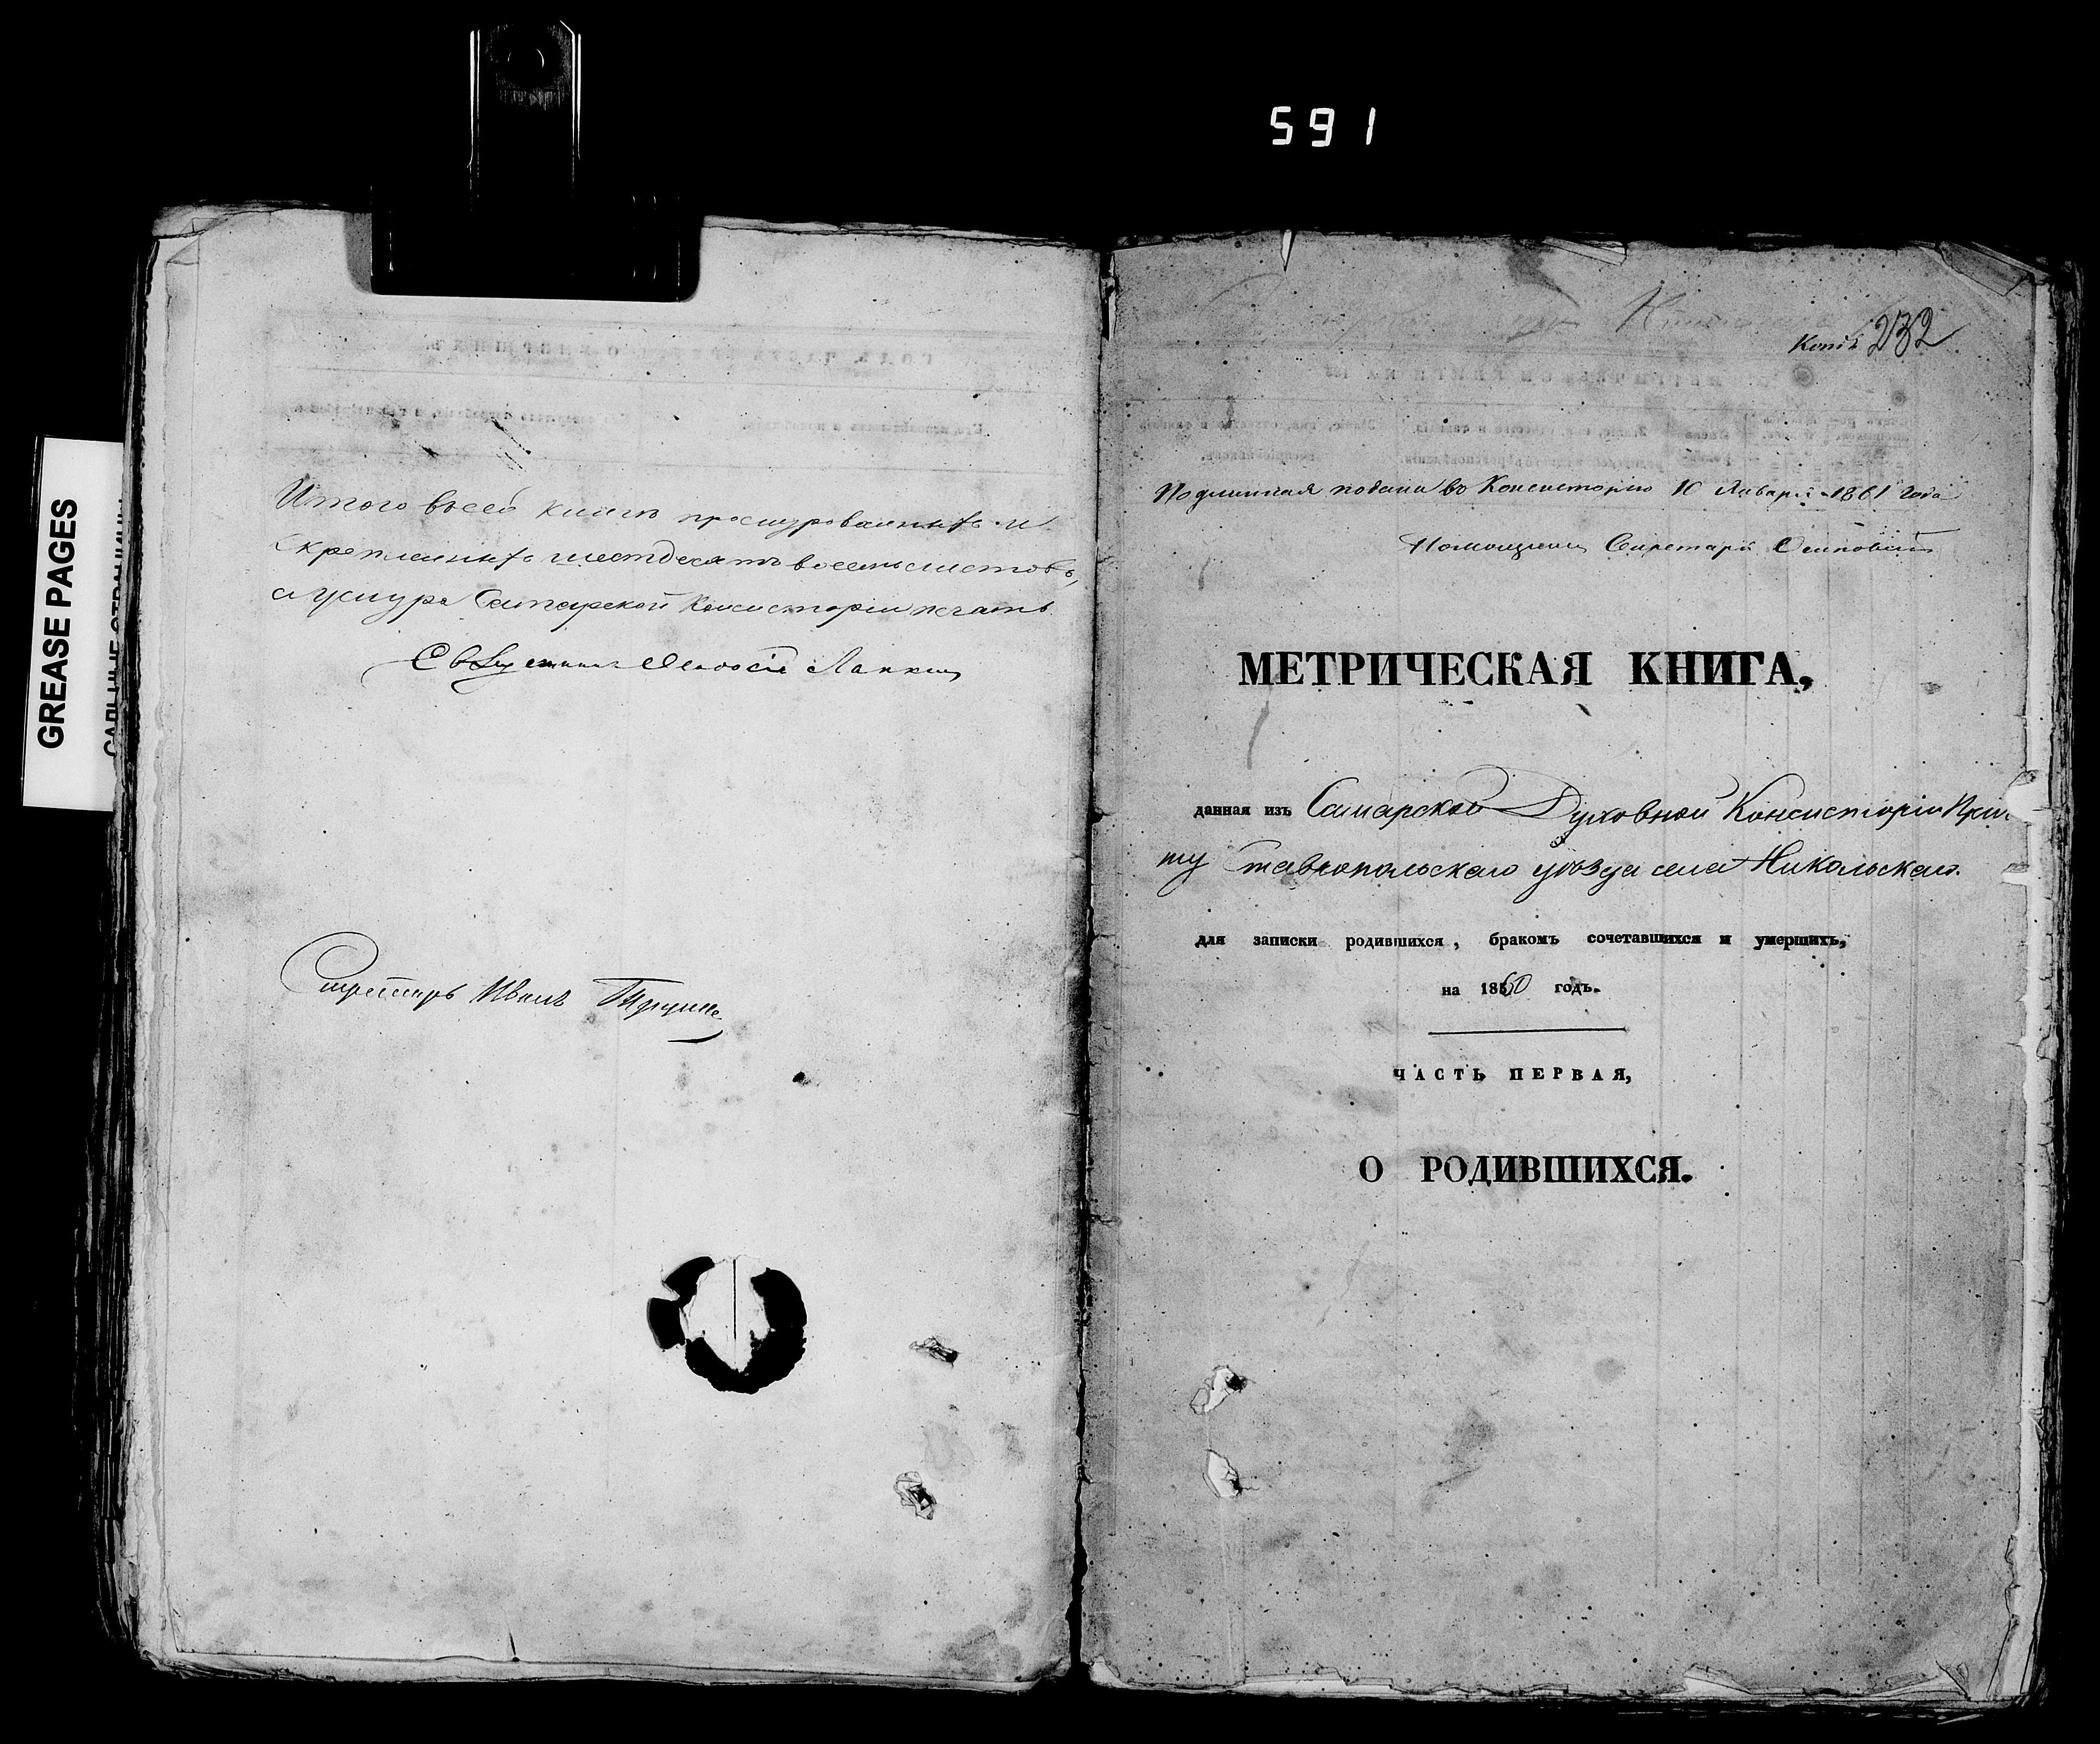 591
GREASE PAGES
Итого въсей книгѣ прошнурованныхъ и
скрепленныхъ шестдесятъ восемь листовъ,
а у шнура Самарской Консисторіи печать.
Секретарь Иванъ
232
Подлинная подана во Консисторію 10 Января 1861 года
Помощникъ Секретаря Осиповскій
МЕТРИЧЕСКАЯ КНИГА,
данная изъ Самарской Духовной Консисторіи Прич
ту Ставропольскаго уѣзда села Никольскаго.
для записки родившихся, бракомъ сочетавшихся и умершихъ,
на 1860 годъ.
ЧАСТЬ ПЕРВАЯ,
О РОДИВШИХСЯ.